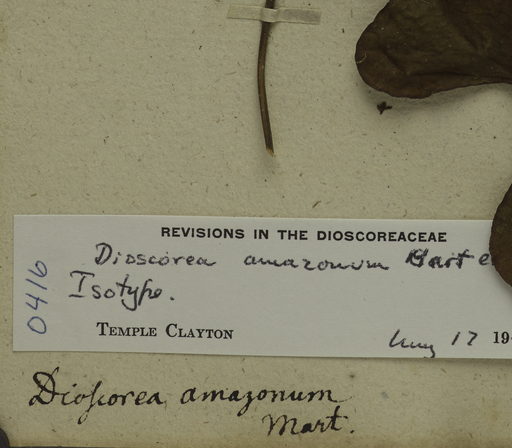 REVISIONS IN THE DIOSCOREACEAE
Dioscorea amazonum Mart e
Isotype.
0416
TEMPLE CLAYTON
17 19
Dioscorea amazonum
Mart.